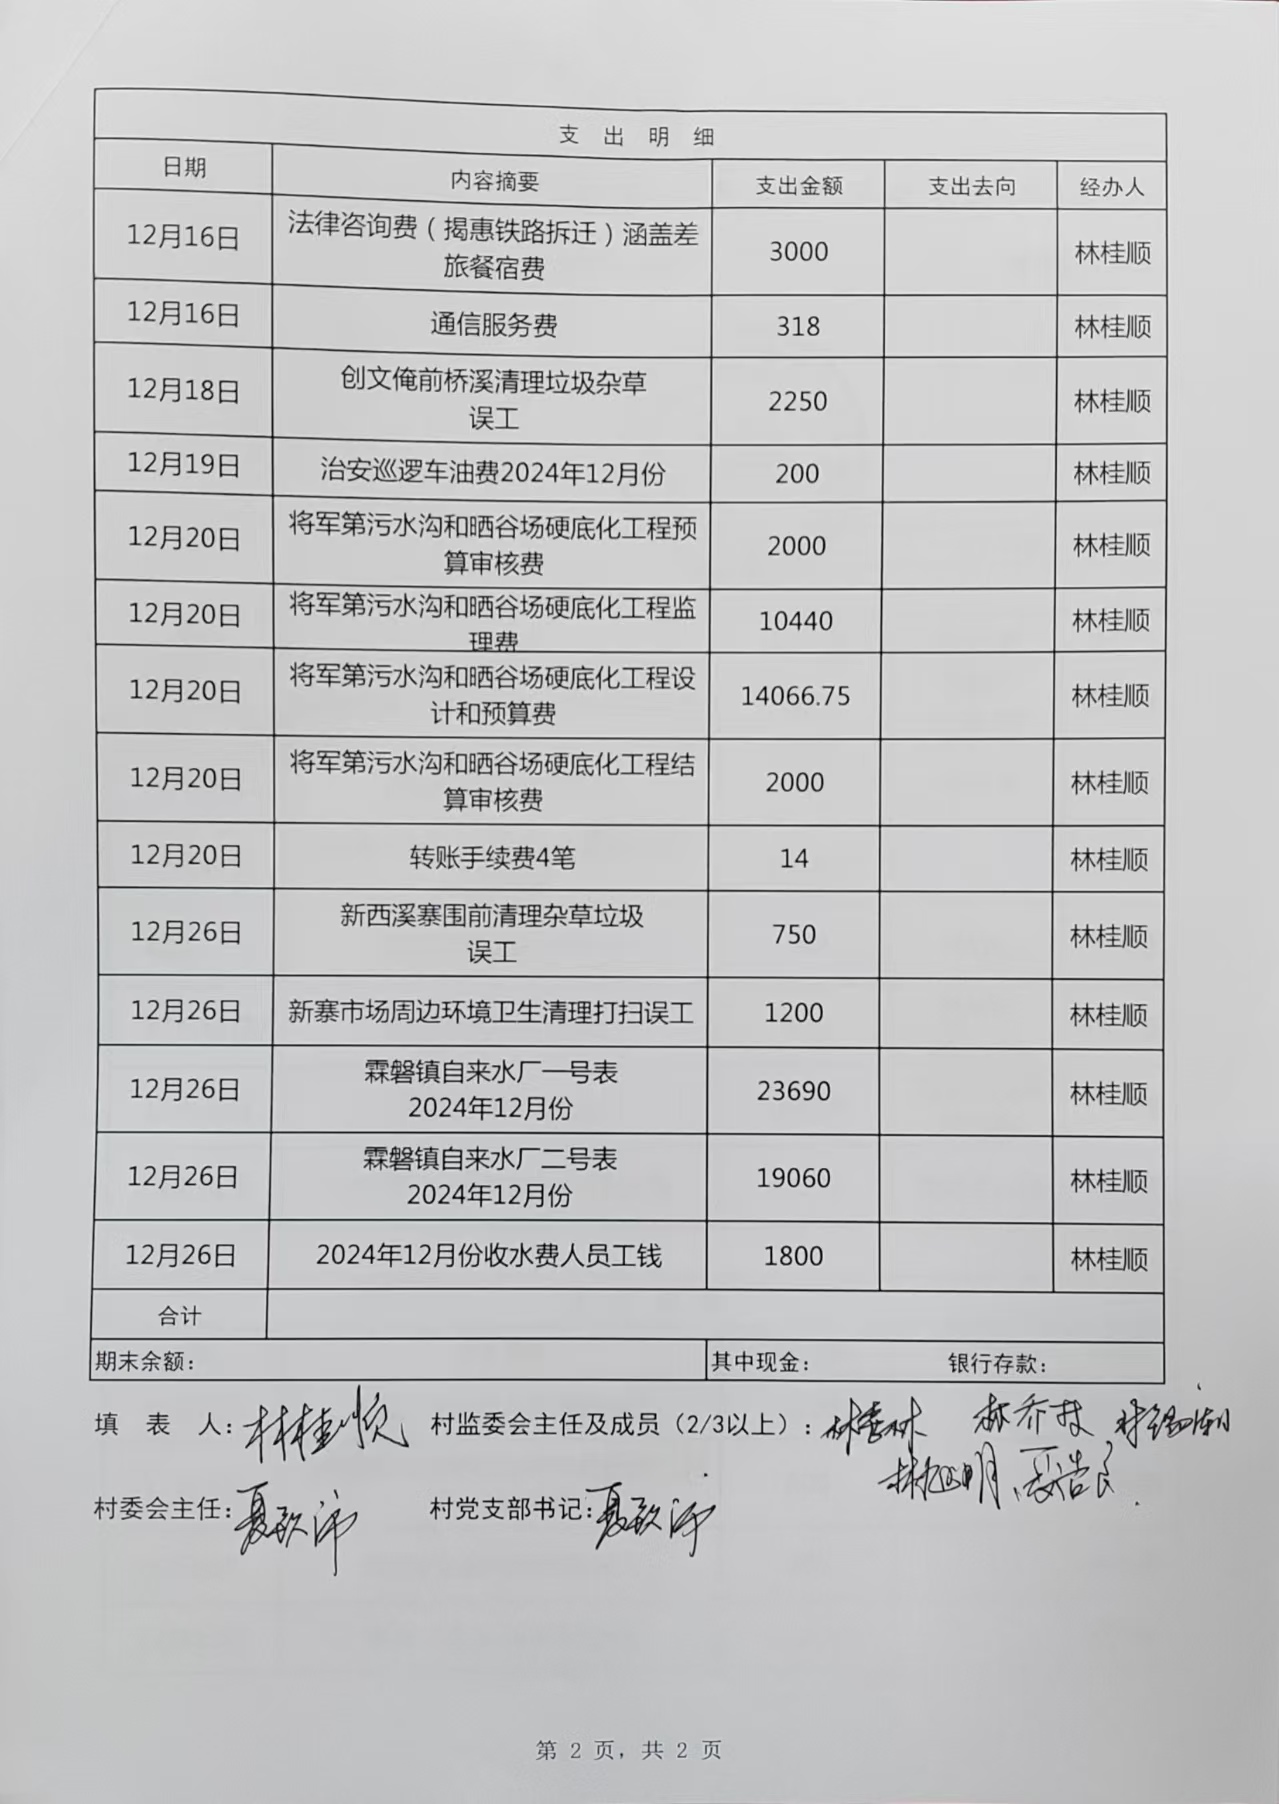 支 出 明 细
日期 内容摘要 支出金额 支出去向 经办人
12月16日 法律咨询费（揭惠铁路拆迁）涵盖差 3000 林桂顺
旅餐宿费
12月16日 通信服务费 318 林桂顺
12月18日 创文俺前桥溪清理垃圾杂草 2250 林桂顺
误工
12月19日 治安巡逻车油费2024年12月份 200 林桂顺
12月20日 将军第污水沟和晒谷场硬底化工程预 2000 林桂顺
算审核费
12月20日 将军第污水沟和晒谷场硬底化工程监 10440 林桂顺
理费
12月20日 将军第污水沟和晒谷场硬底化工程设 14066.75 林桂顺
计和预算费
12月20日 将军第污水沟和晒谷场硬底化工程结 2000 林桂顺
算审核费
12月20日 转账手续费4笔 14 林桂顺
12月26日 新西溪寨围前清理杂草垃圾 750 林桂顺
误工
12月26日 新寨市场周边环境卫生清理打扫误工 1200 林桂顺
12月26日 霖磐镇自来水厂一号表 23690 林桂顺
2024年12月份
12月26日 霖磐镇自来水厂二号表 19060 林桂顺
2024年12月份
12月26日 2024年12月份收水费人员工钱 1800 林桂顺
合计
期末余额： 其中现金： 银行存款：
填 表 人：林桂顺 村监委会主任及成员（2/3以上）：
村委会主任： 村党支部书记：
第 2 页，共 2 页